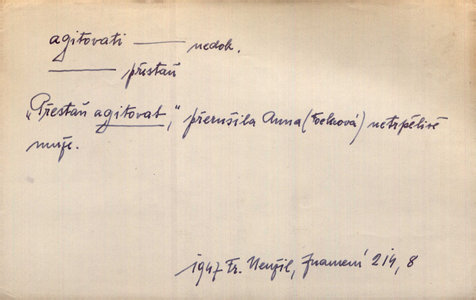 agitovati —— nedok.
—— přestaň
„Přestaň agitovat,“ přerušila Anna ( ) netrpělivě
muže.
1947 Fr. Neužil, Znamení 214, 8